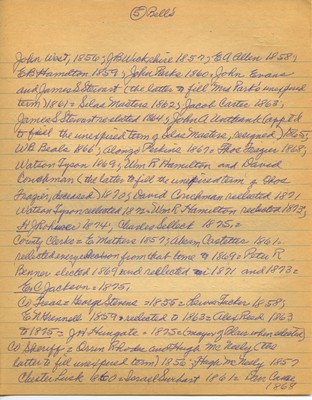 ⑤ Bells
John West, 1856; J B Wickshire 1857; E A Allen 1858;
E B Hamilton 1859; John Parke 1860; John Evans
and James S Stewart (the latter to fill Mrs Park's unexpired
term) 1861 = Silas Masters 1862; Jacob Carter 1863;
James S Stewart reelected 1864; John A Appt'd
to fill the unexpired term of Silas Masters, resigned) 1865;
W E Beale 1866; Alonzo Perkins 1867; Thos Frazier 1868;
Watson Tyson 1869; Wm R Hamilton and David
(the latter to fill the unexpired term of Thos
Frazier, deceased) 1870; David reelected 1871
Watson Tyson reelected 1872 = Wm R Hamilton reelected 1873;
1874; Charles 1875 =
County Clerks = E Mathers 1857; 1861 =
reelected every election from that time to 1869 = Peter R
Benner elected 1869 and reelected in 1871 and 1873 =
E C Jackson = 1875;
Co Treas = George Stevens = 1855 = Tucker 1858;
1859 = reelected to 1863 = Alex Reed 1863
to 1875 = J H Hungate = 1875 = (mayor of when elected)
Co Sheriff = Orrin Rhodes and Hugh McNeely (the
latter to fill unexpired term) 1856 Hugh McNeely 1857
Chester Lusk 1860 = Israel 1861 =
1863